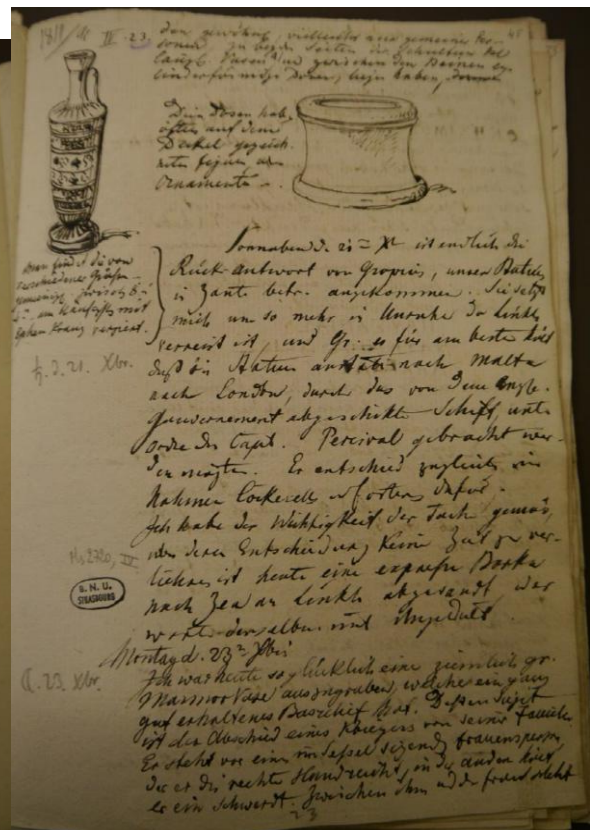 1811/ IV. 23.
den gewöhnl, vielleicht aus gemeiner Per-
sonen, zu beyden Seiten der Schultern
Vasen und zwischen den Beinen cy-
linderförmige Dosen, liegen haben,
Diese Dosen hab.
öfters auf dem
Dekel gezeich
nete Figuren oder
Ornamente.
man findet die von
verschiedener Größe
mit
Epheu Kranz verziert.
Sonnabend d. 21 Xbr ist endlich die
Rück antwort von Gropius, unsere Statuen
in Zante betr. angekommen. Sie setzt
mich um so mehr in Unruhe da Linkh
verreist ist, und Gr. es für am besten hält
daß die Statuen nach Malta
nach London, durch das von dem engl.
Gouvernement abgeschikte Schiff, unter
ordre des Capt. Percival gebracht wer-
den mögten. Er entschied zugleich im
Nahmen Cockerells u Fosters dafür.
Ich habe der Wichtigkeit der Sach gemäs,
um deren Entscheidung keine Zeit zu ver-
liehren ist heute eine expresse Barke
nach Zea an Linkh abgesandt und
warte derselben mit Ungedult.
d. 21. Xbr.
Ms 2720, IV
B. N. U.
STRASBOURG
Montag d. 23 Xbris
d. 23. Xbr.
Ich war heute so glücklich eine ziemlich gr.
Marmor Vase auszugraben, welche ein ganz
gut erhaltenes Basrelief hat. Dessen Sujet
ist der Abschied eines Kriegers von seiner Familie
Er steht vor einer im Sessel sitzend Frauensperson,
der er die rechte Hand reicht, in der andern hält
er ein Schwerdt. Zwischen ihm und der Frau steht
23